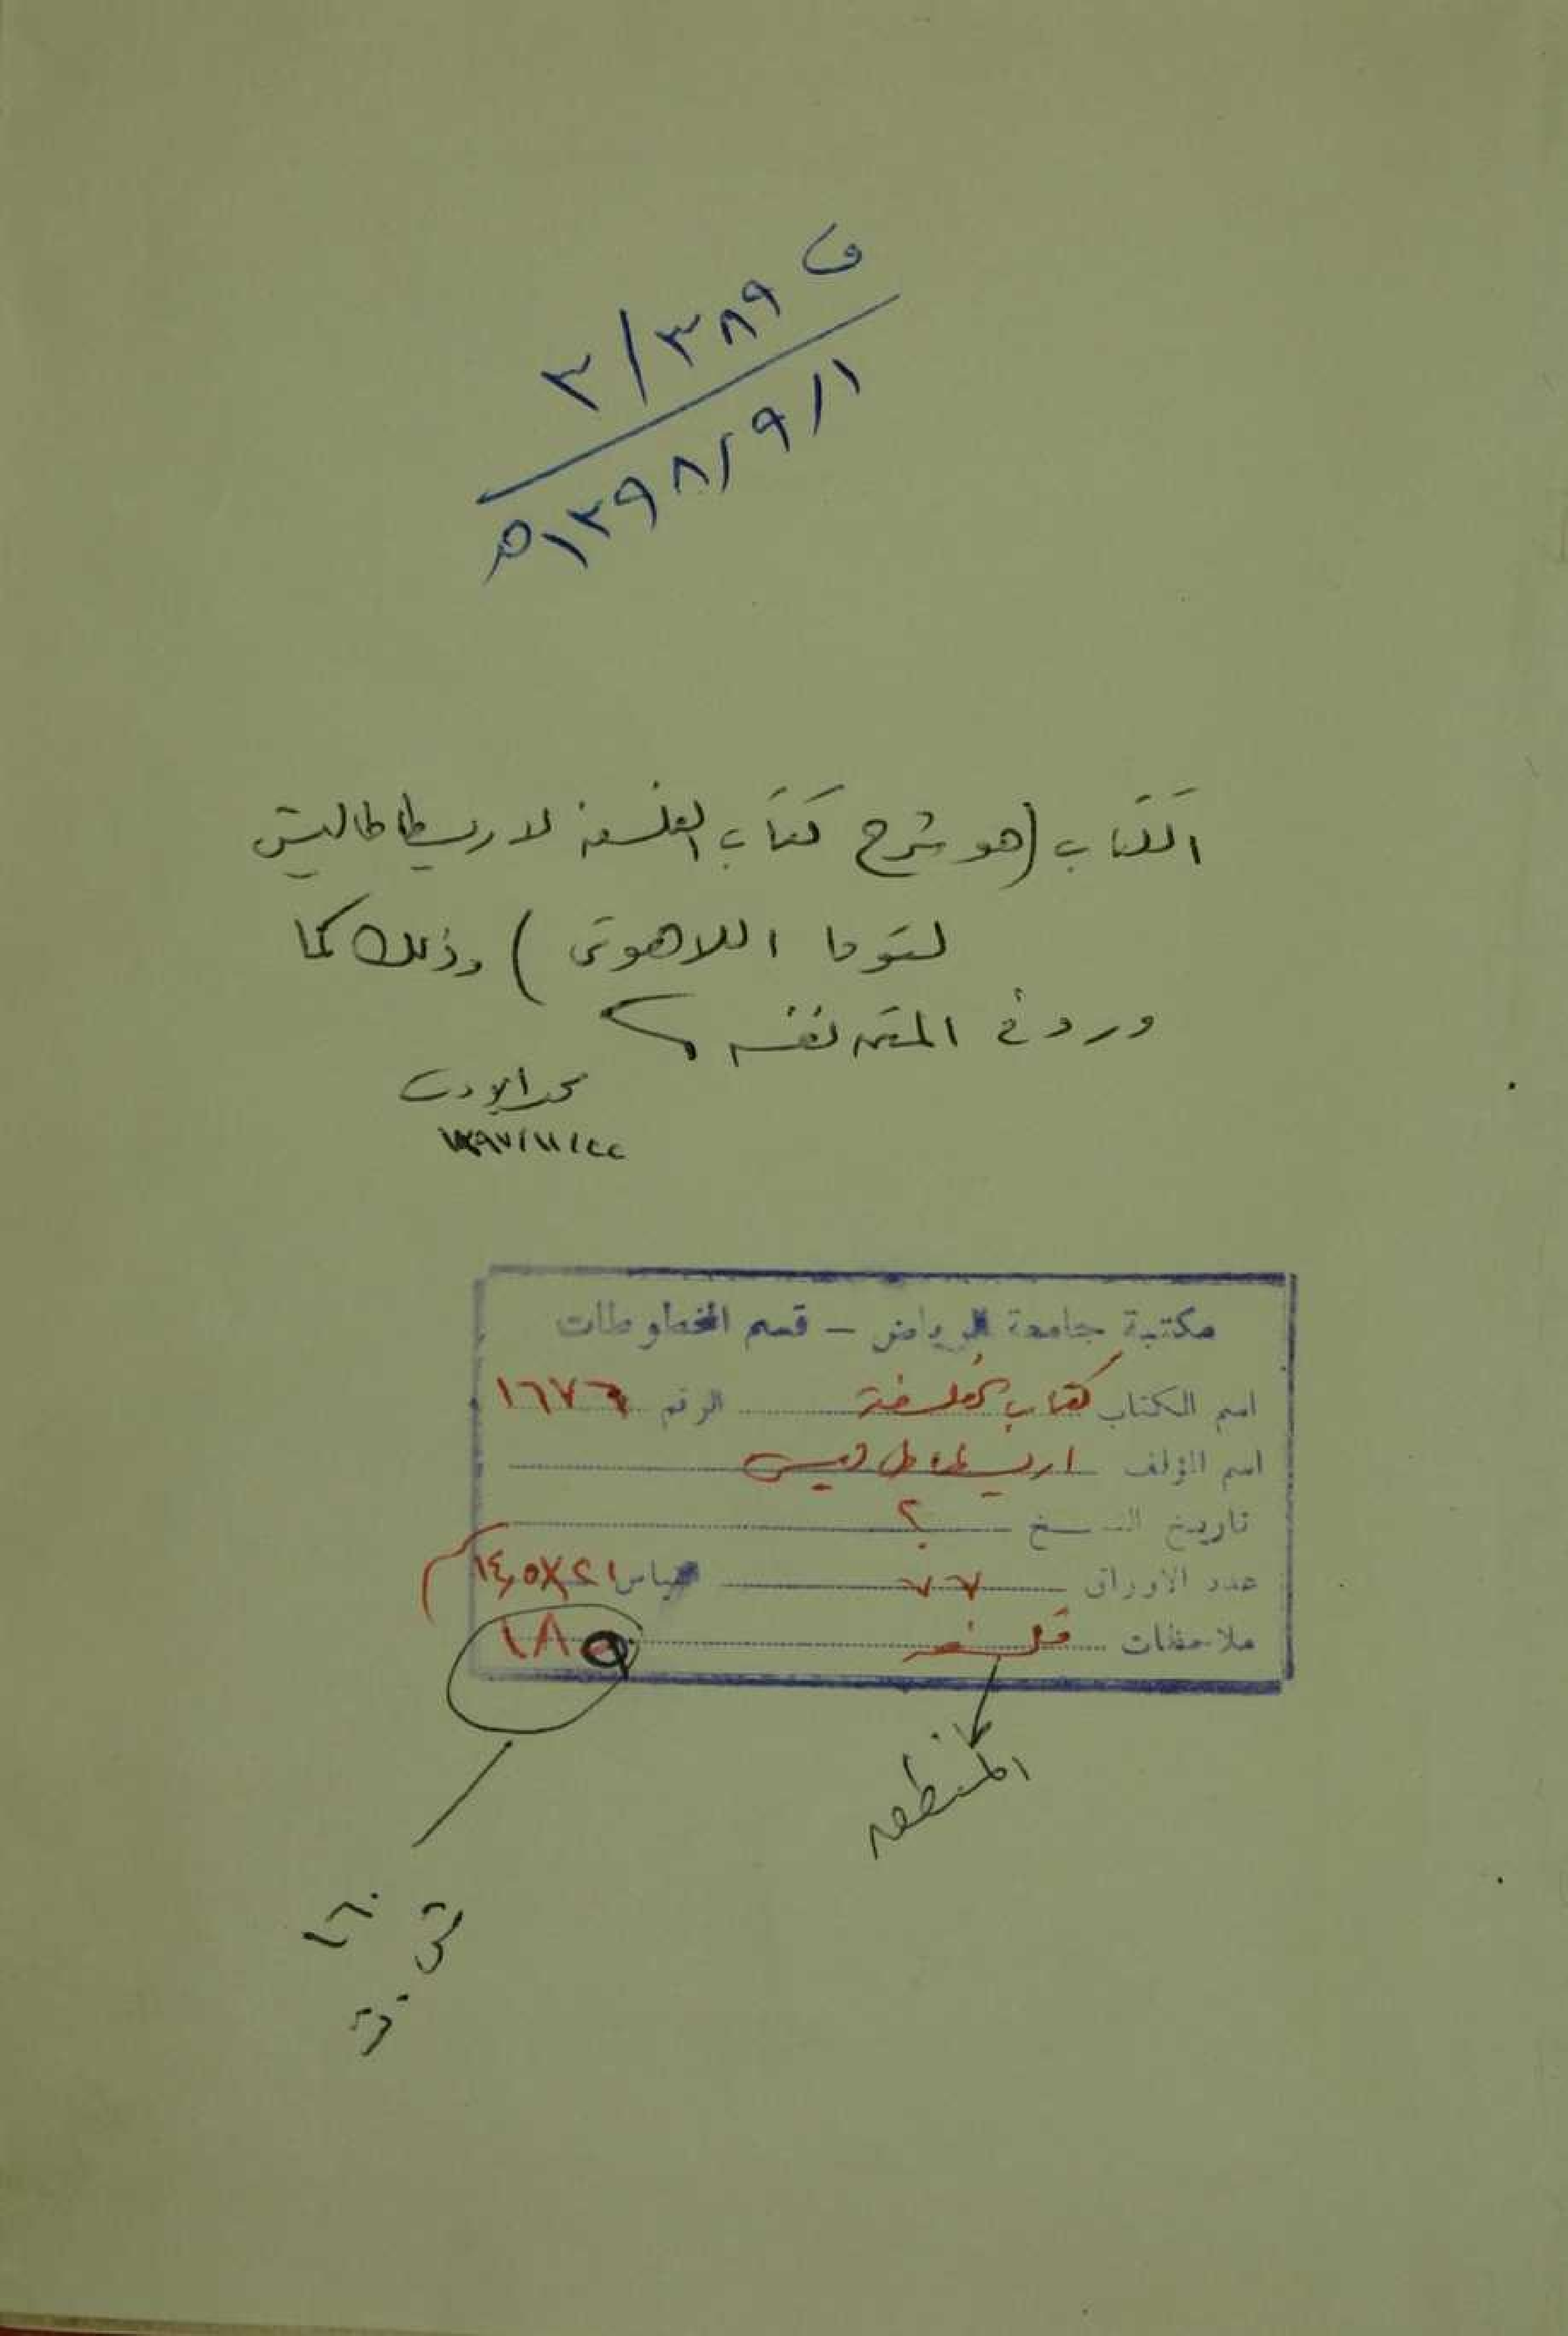 ف ٣٨٩/٣
١/٩/١٣٩٨هـ
الكتاب (هو شرح كتاب الفلسفة لارسطاطاليس
لتوما اللاهوتى) وذلك كما
ورد فى المقدمه نفسه
١٣٩٧/١١/٢٢
مكتبة جامعة الرياض - قسم المخطوطات
اسم الكتاب كتاب الفلسفة الرقم ١٦٧٦
اسم المؤلف ارسطاطاليس
تاريخ النسخ ؟
عدد الاوراق ٧٧ قياس ٢١×١٤,٥
ملاحظات فلسفه ١٨٥
المنطق
١٦٠